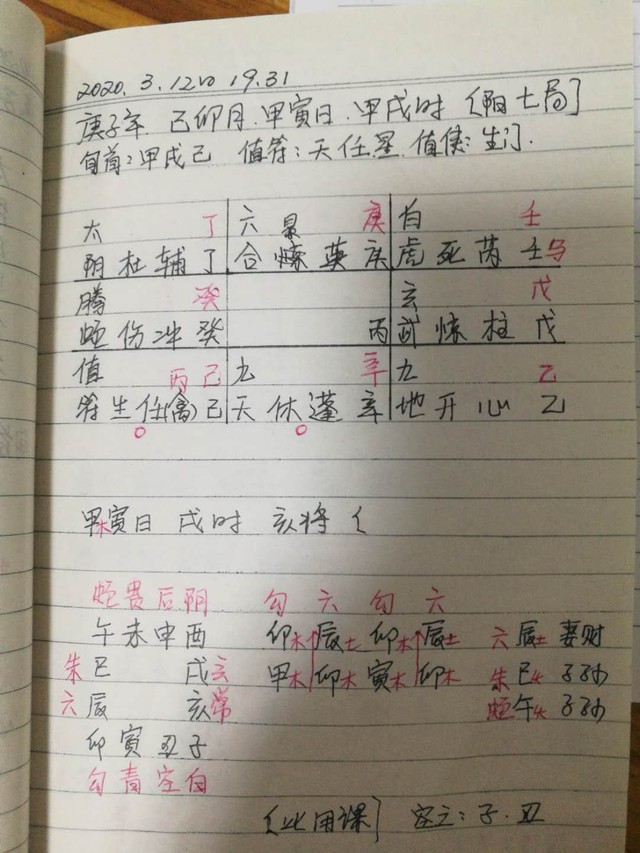 2020.3.12日 19.31
庚子年 己卯月 甲寅日 甲戌时 (阳七局]
旬首:甲戌己 值符:天任星 值使:生门.
太 丁 六 景 庚 白 壬
阴 杜 辅 丁 合 英 庚 虎 死 芮 壬 马
腾 癸 玄 戊
蛇 伤 冲 癸 丙 武 柱 戊
值 丙 己 九 辛 九 乙
符 生 任(禽)己 天 休 蓬 辛 地 开 心 乙
甲木寅日 戌时 亥将 (
蛇 贵 后 阴 勾 六 勾 六
午 未 申 酉 卯木 辰土 卯木 辰土 六 辰土 妻财
朱 巳 戌 玄 甲木 卯木 寅木 卯木 朱 巳火 子孙
六 辰 亥 常 蛇 午火 子孙
卯 寅 丑 子
勾 青 空 白
(比用课] 空亡:子.丑